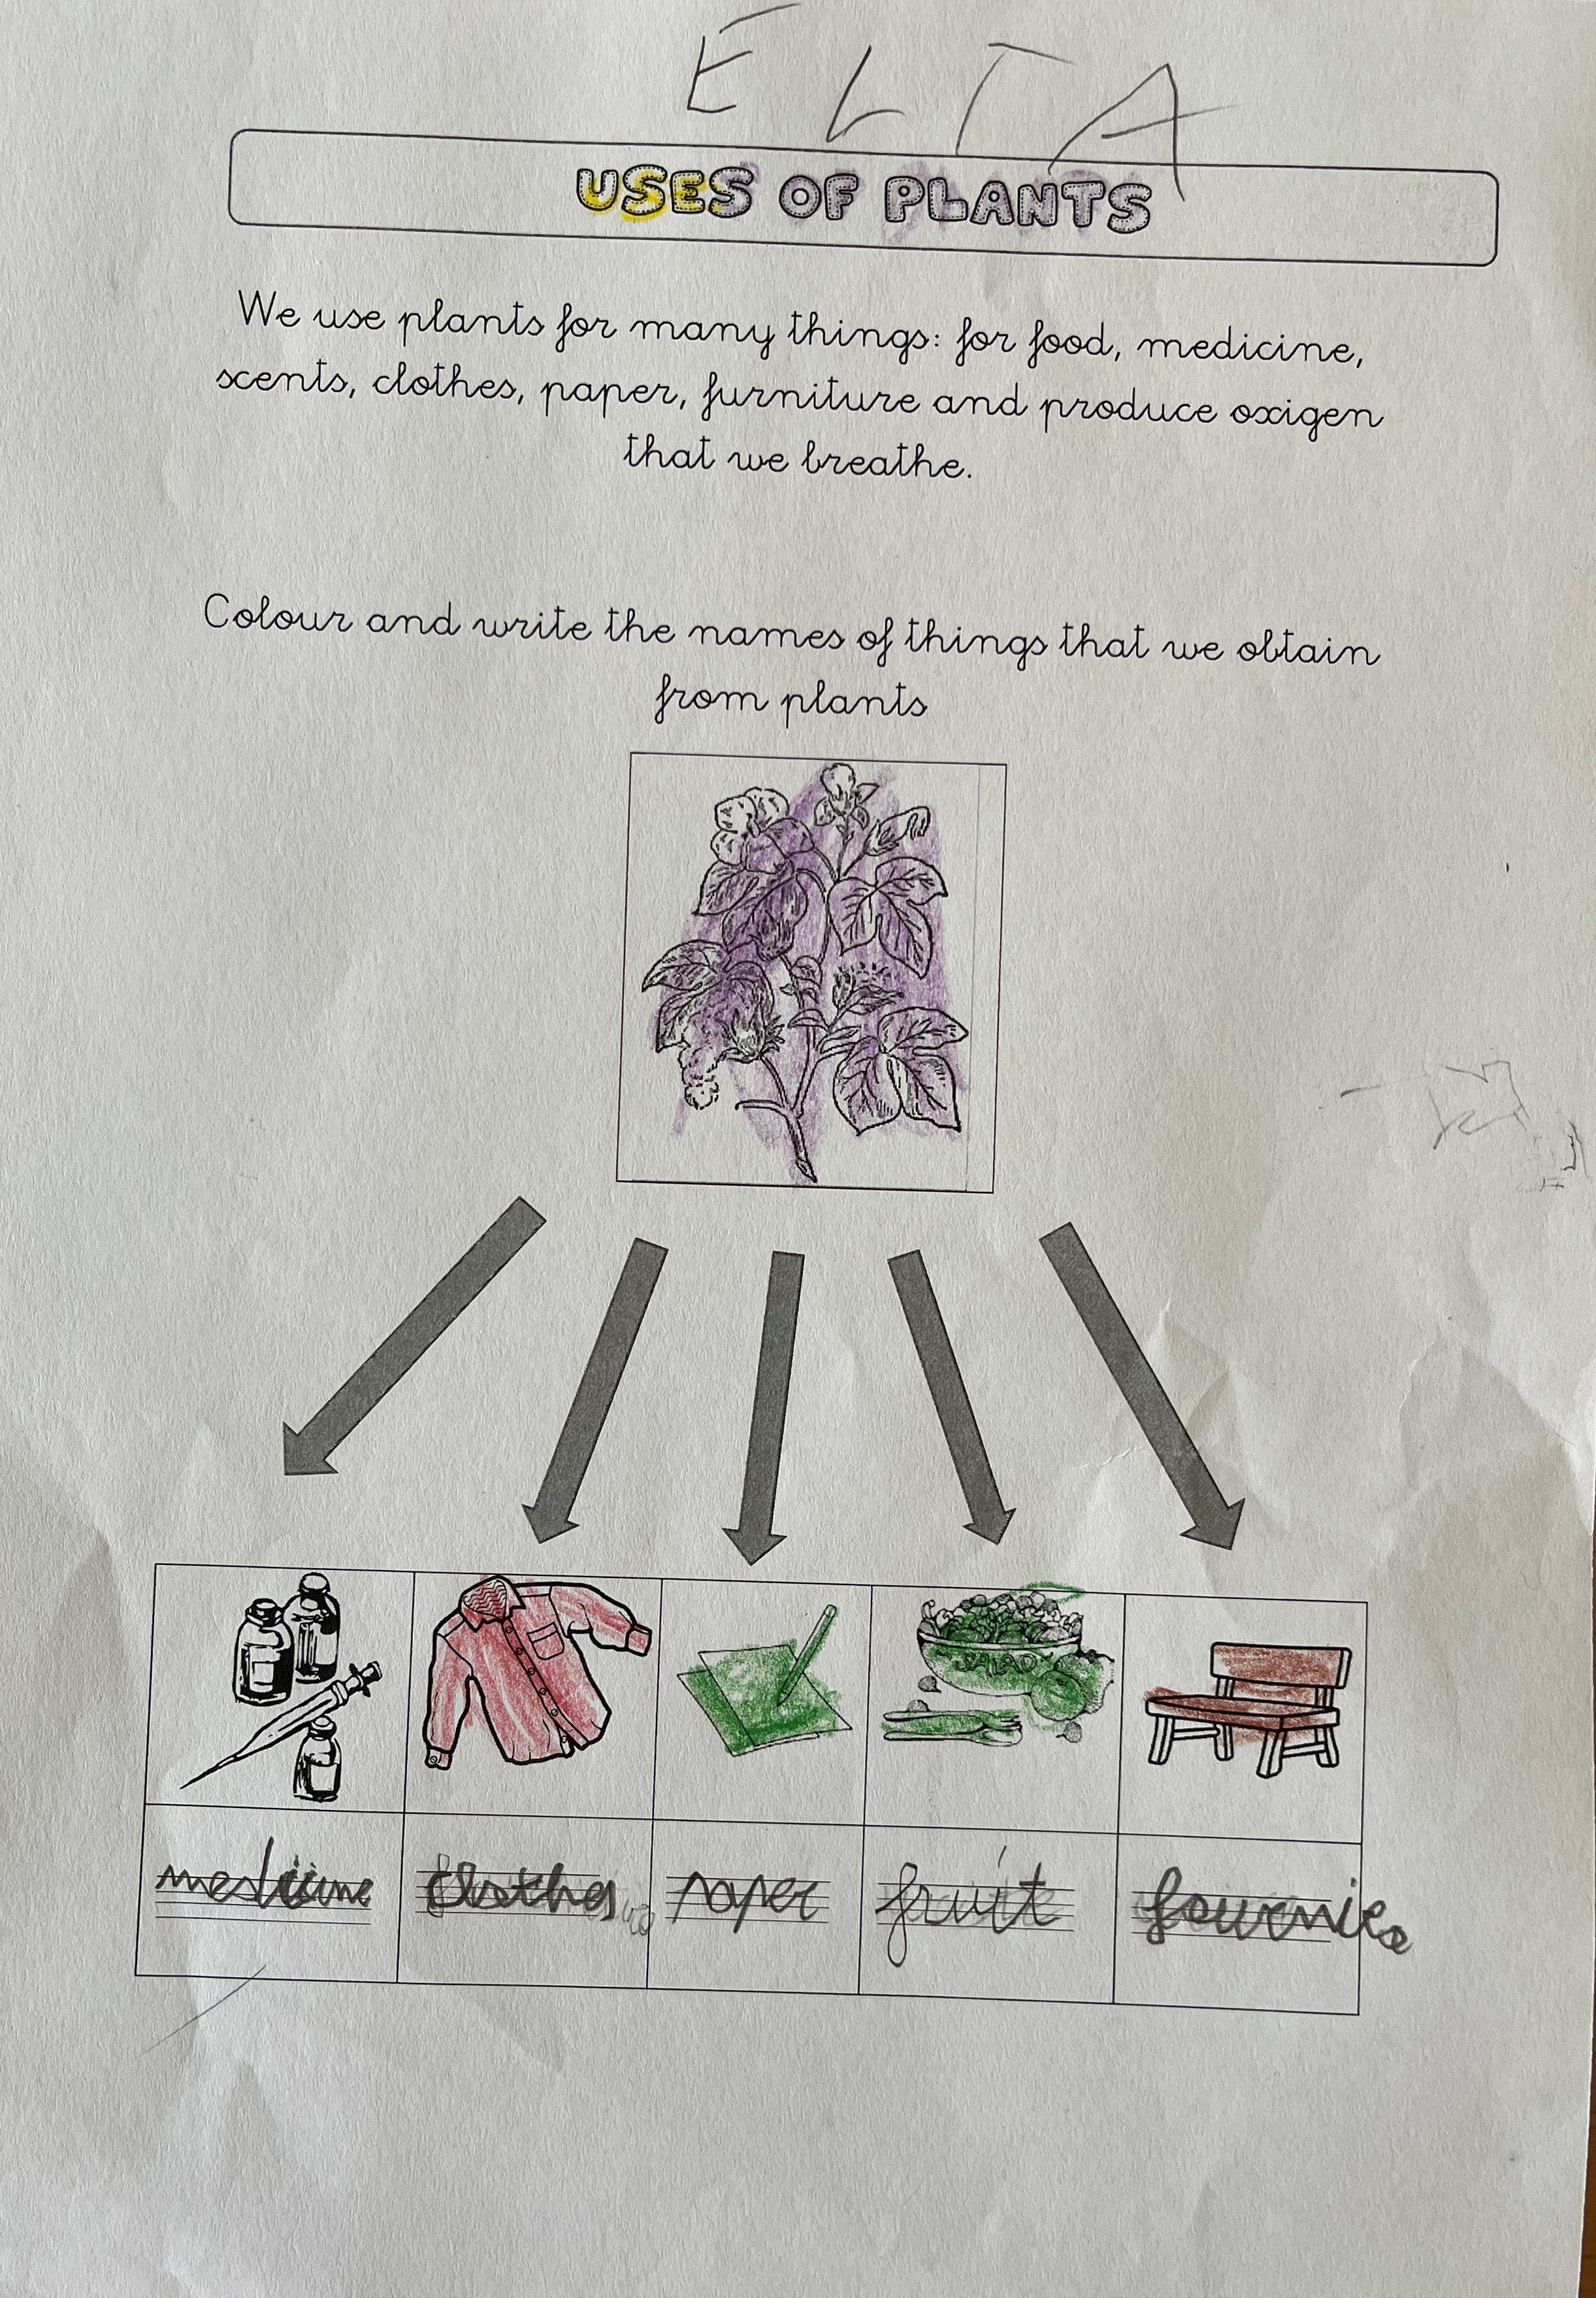 ELTA
USES OF PLANTS
We use plants for many things: for food, medicine,
scents, clothes, paper, furniture and produce oxigen
that we breathe.
Colour and write the names of things that we obtain
from plants
SALAD
clothes paper fruit